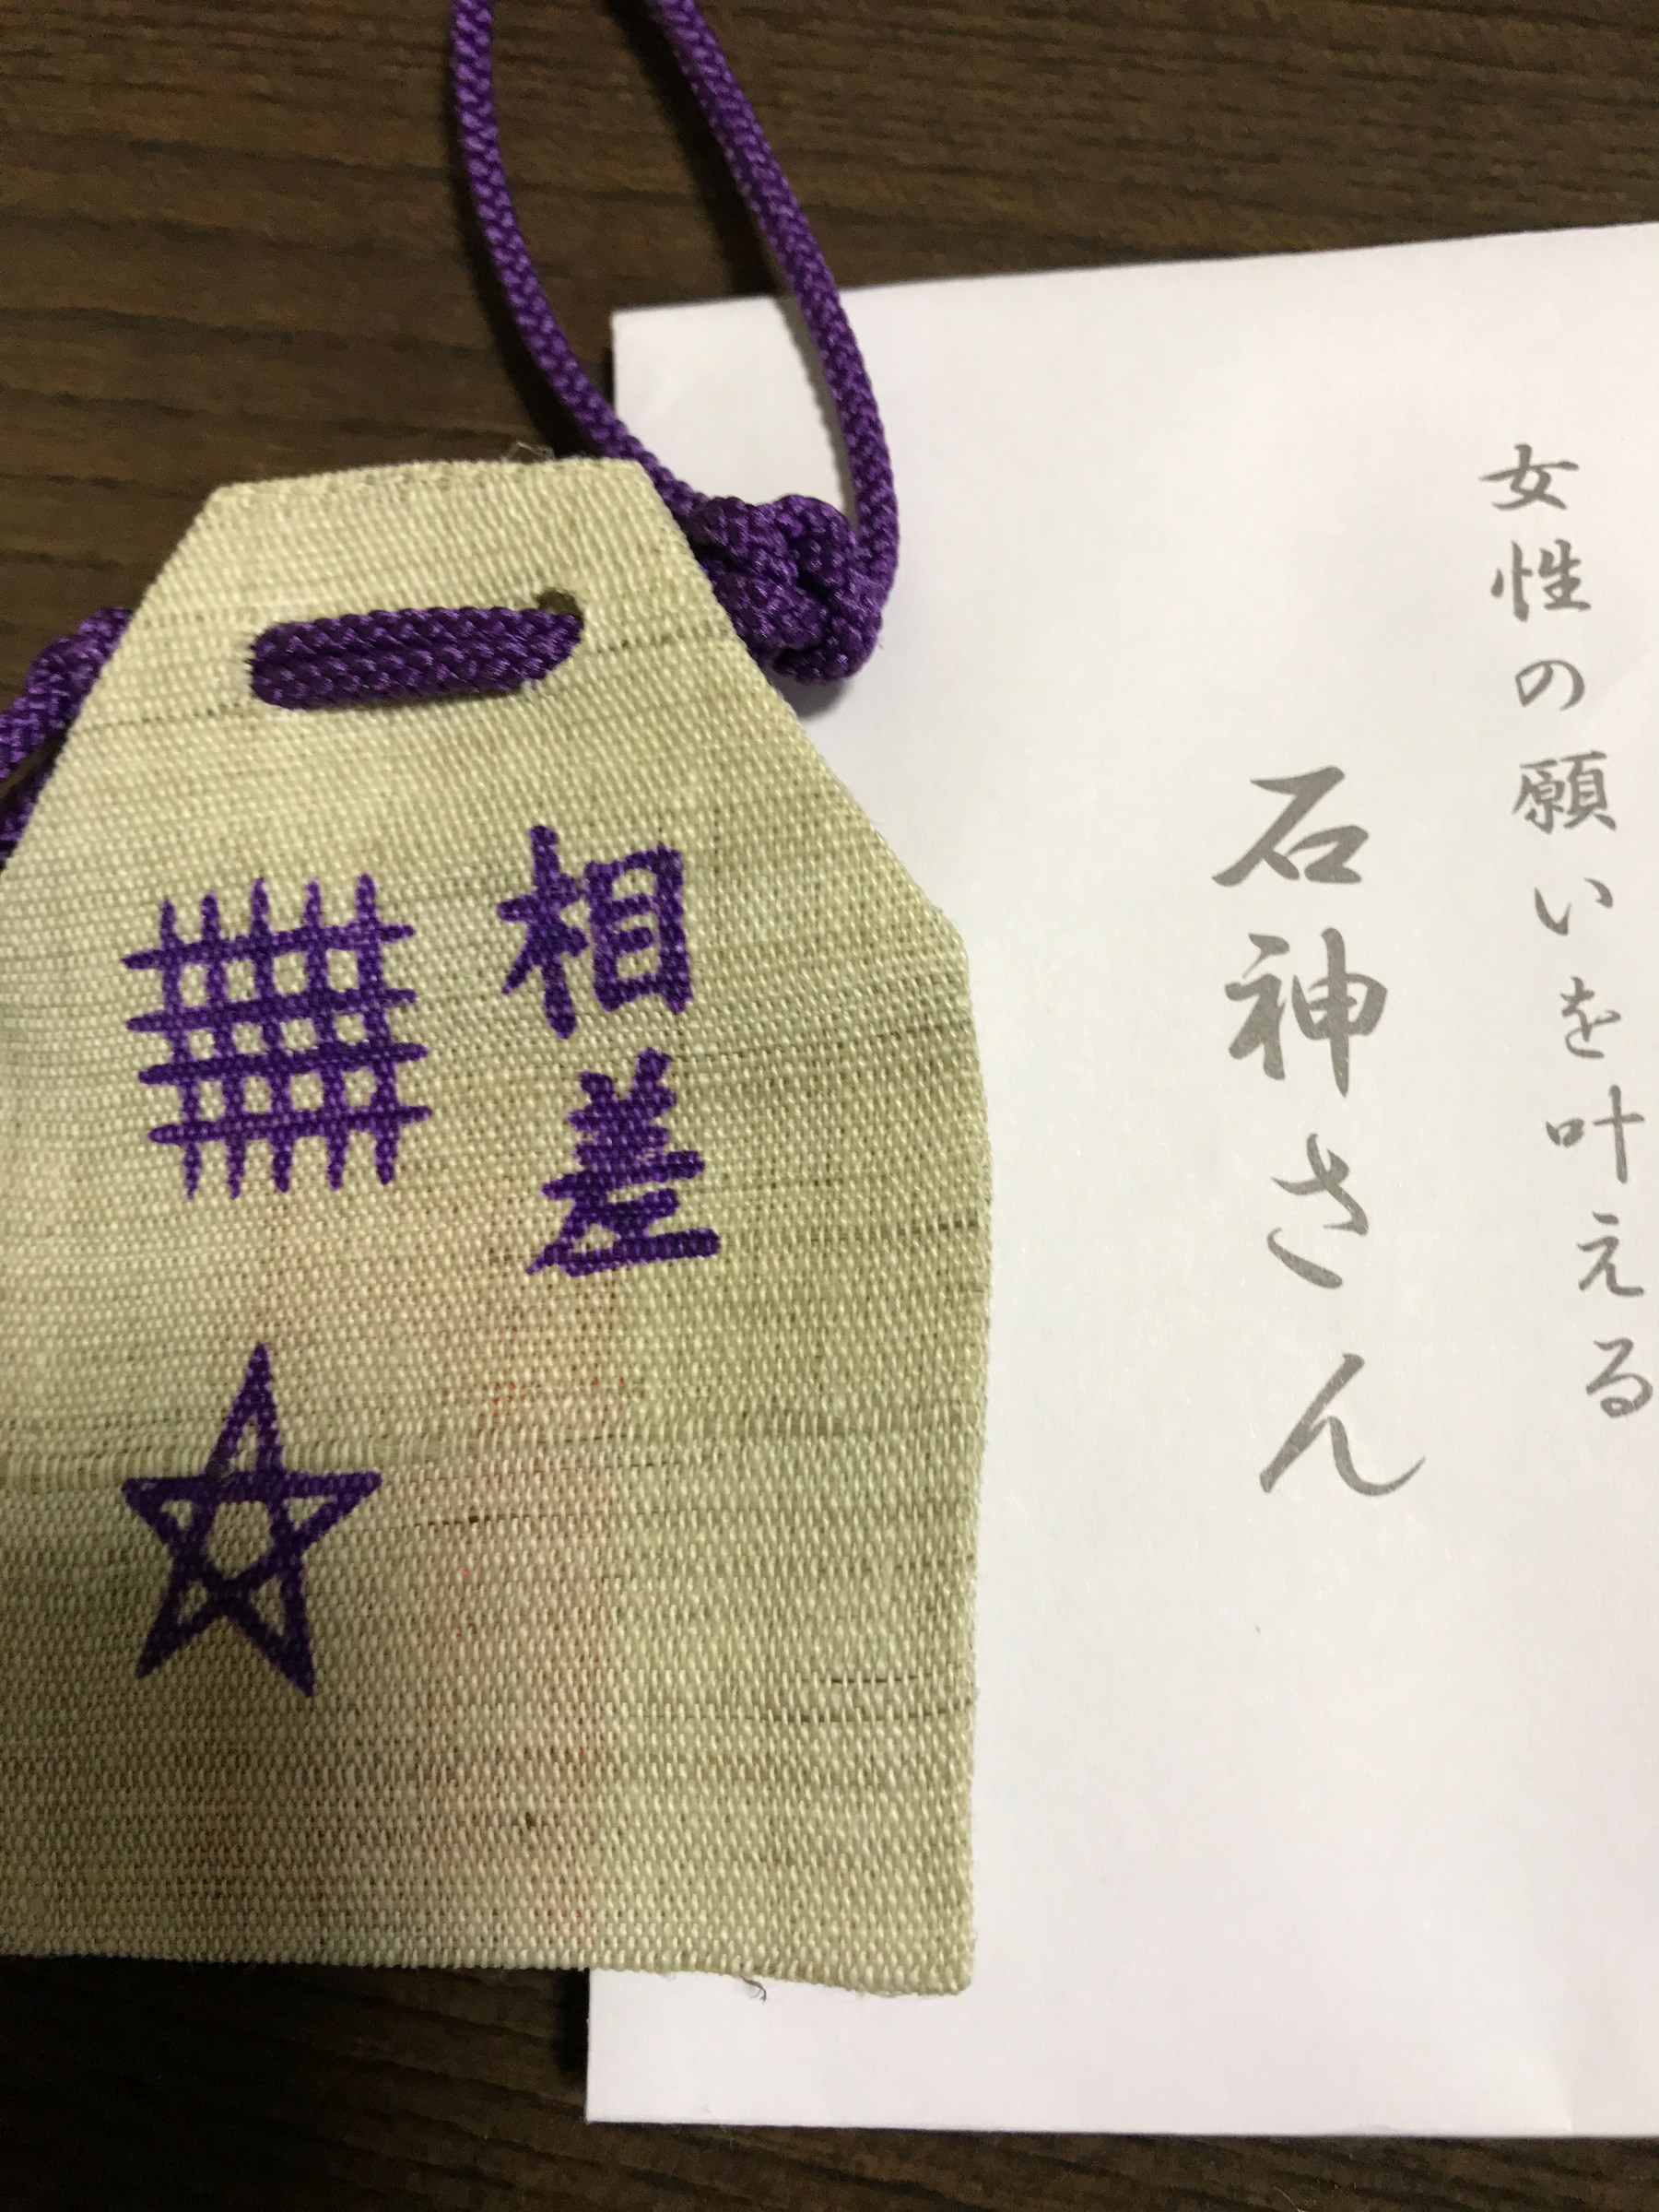 女性の願いを叶える
石神さん
相差